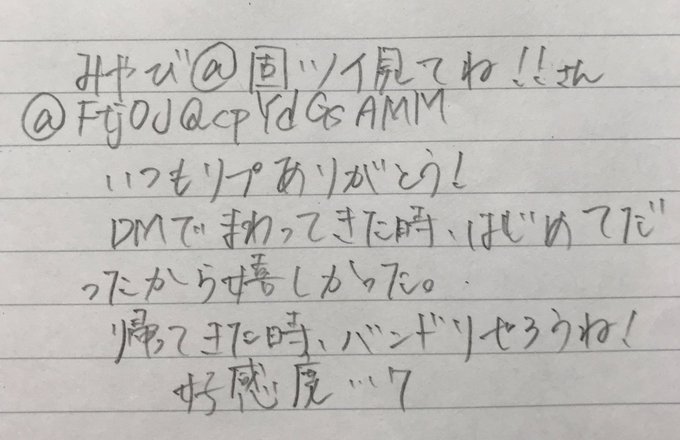 みやび@固ツイ見てね!!さん
@FtjOJQcpYdGsAMM
いつもリプありがとう!
DMでまわってきた時、はじめてだ
ったから嬉しかった。
帰ってきた時、バンドリやろうね!
好感度…7